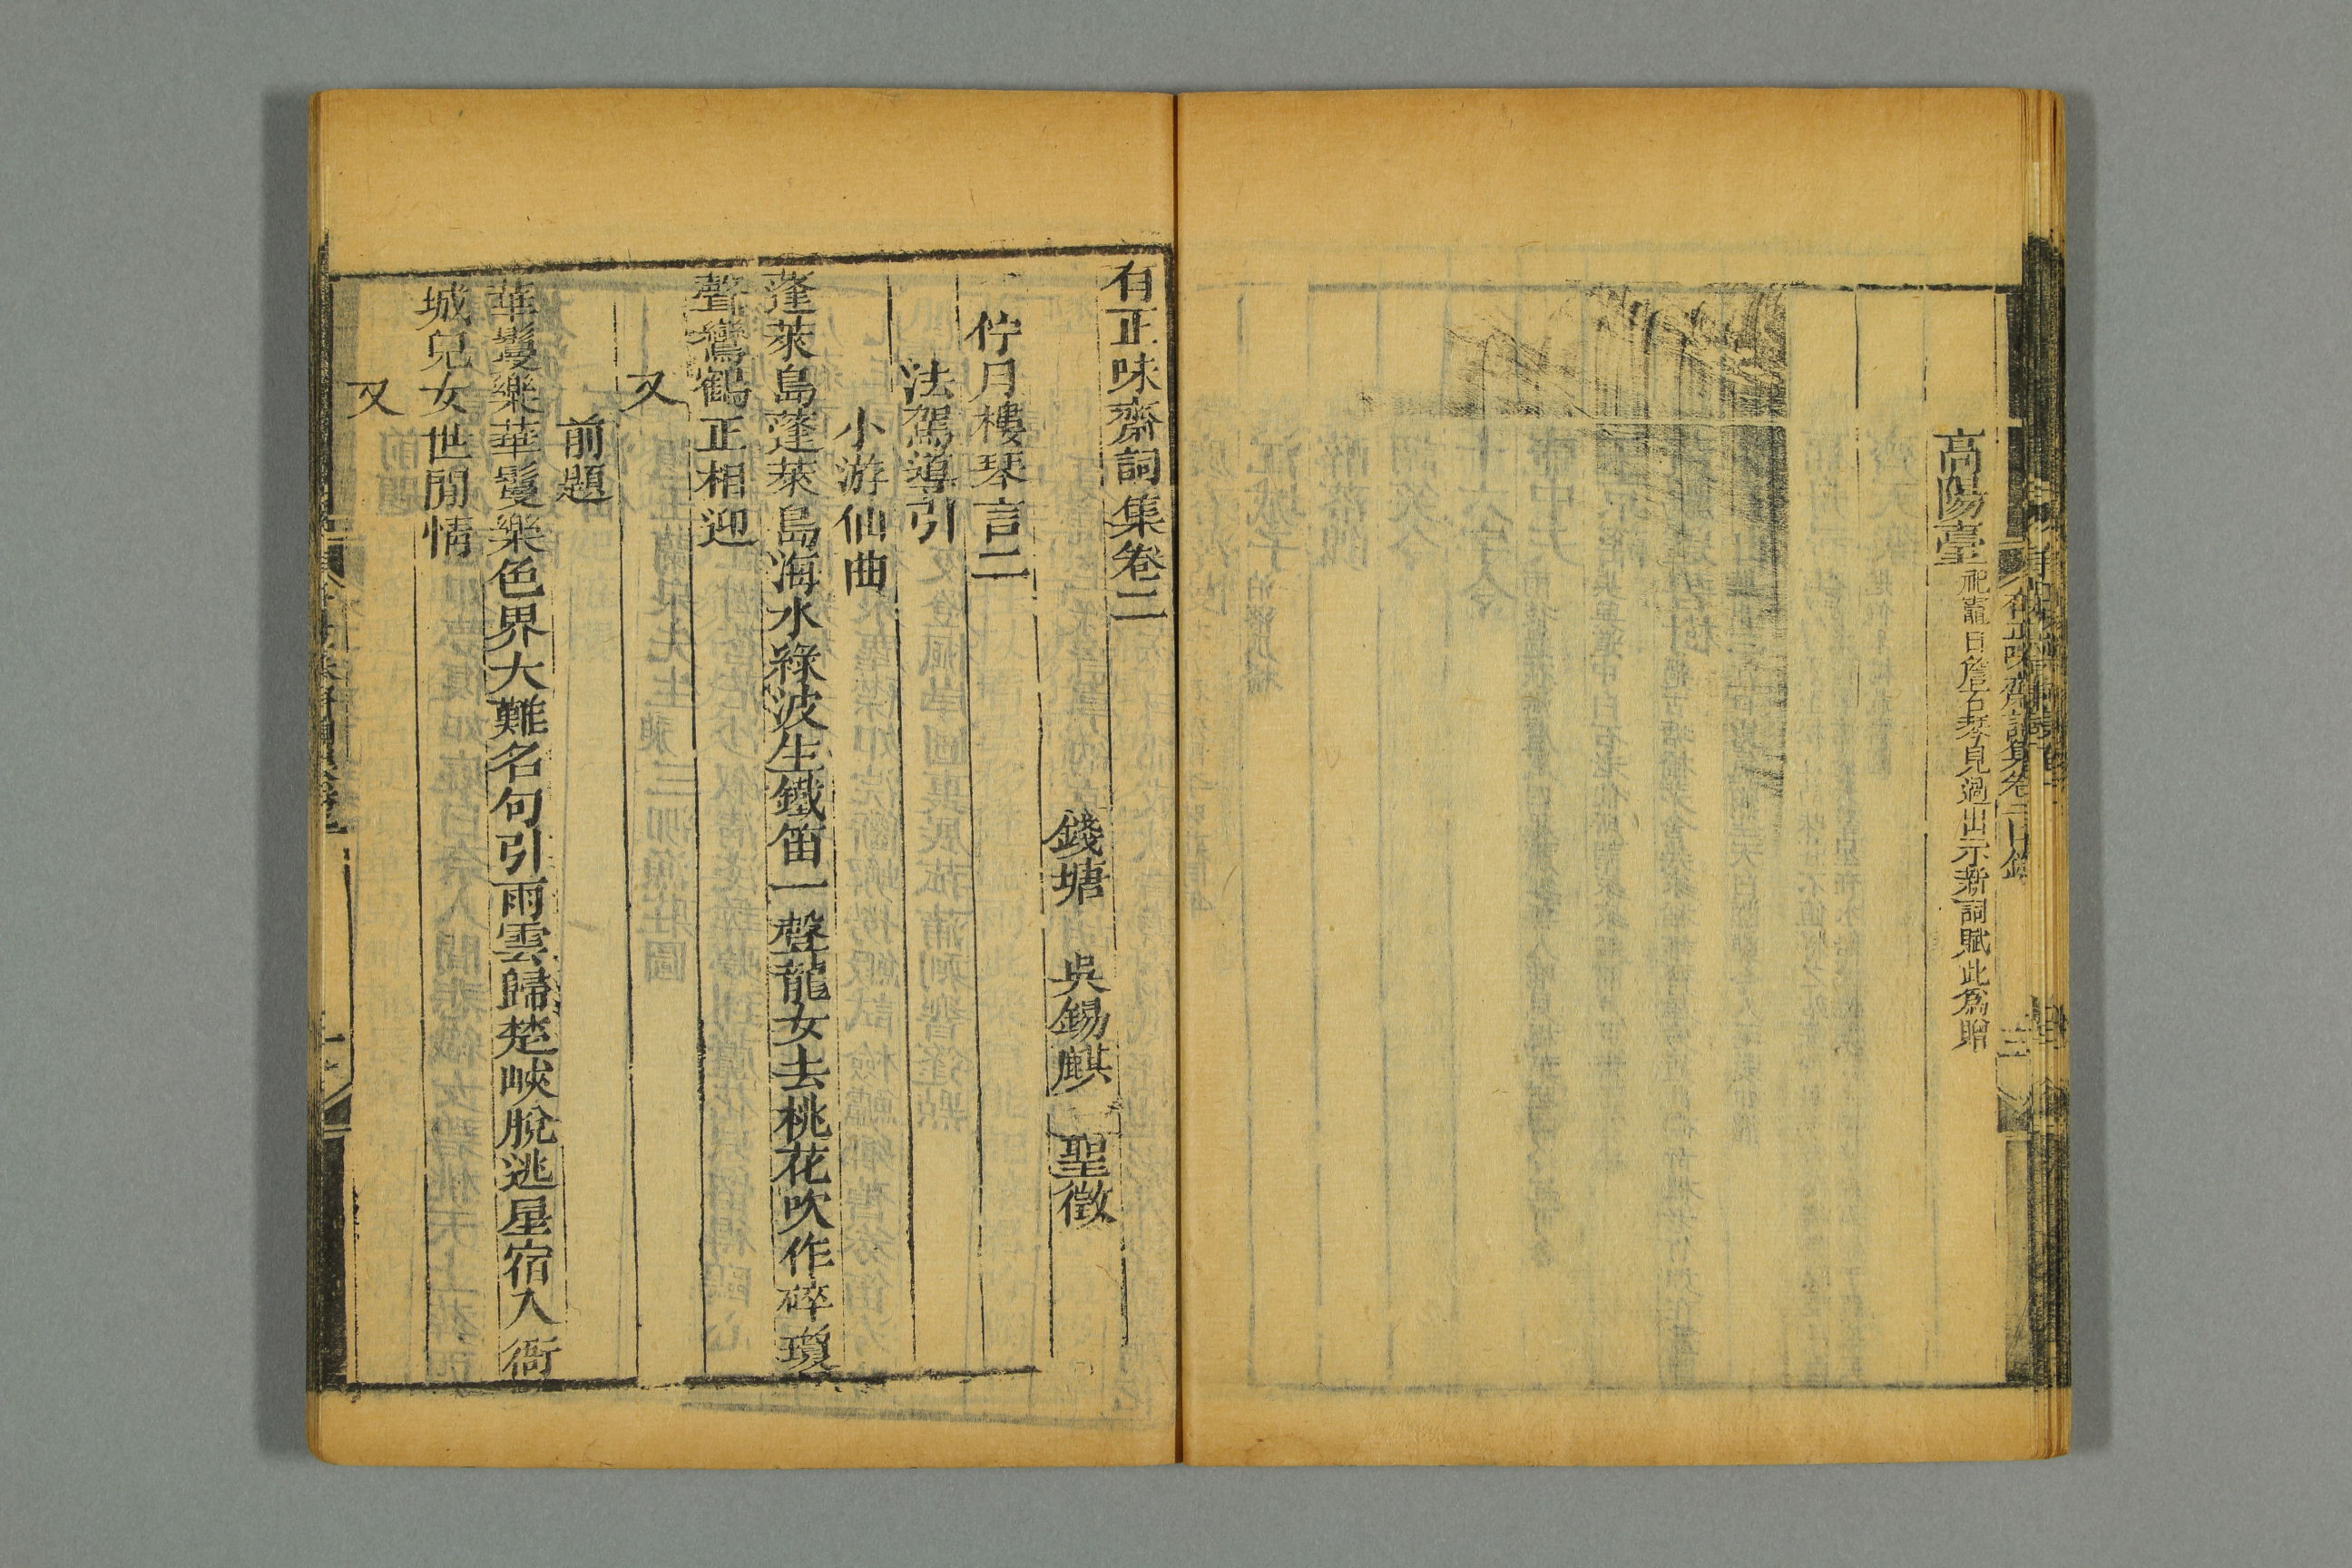 高陽臺祀竈日詹石琴見過出示新詞賦此爲贈
有正味齋詞集卷二目錄
三
有正味齋詞集卷二
錢塘 吳錫麒 聖徵
佇月樓琴言二
法駕導引
小游仙曲
蓬萊島蓬萊島海水綠波生鐵笛一聲龍女去桃花吹作碎瓊
聲鸞鶴正相迎
又
前題
華鬘樂華鬘樂色界大難名句引雨雲歸楚峽脫逃星宿入衙
城兒女世閒情
又